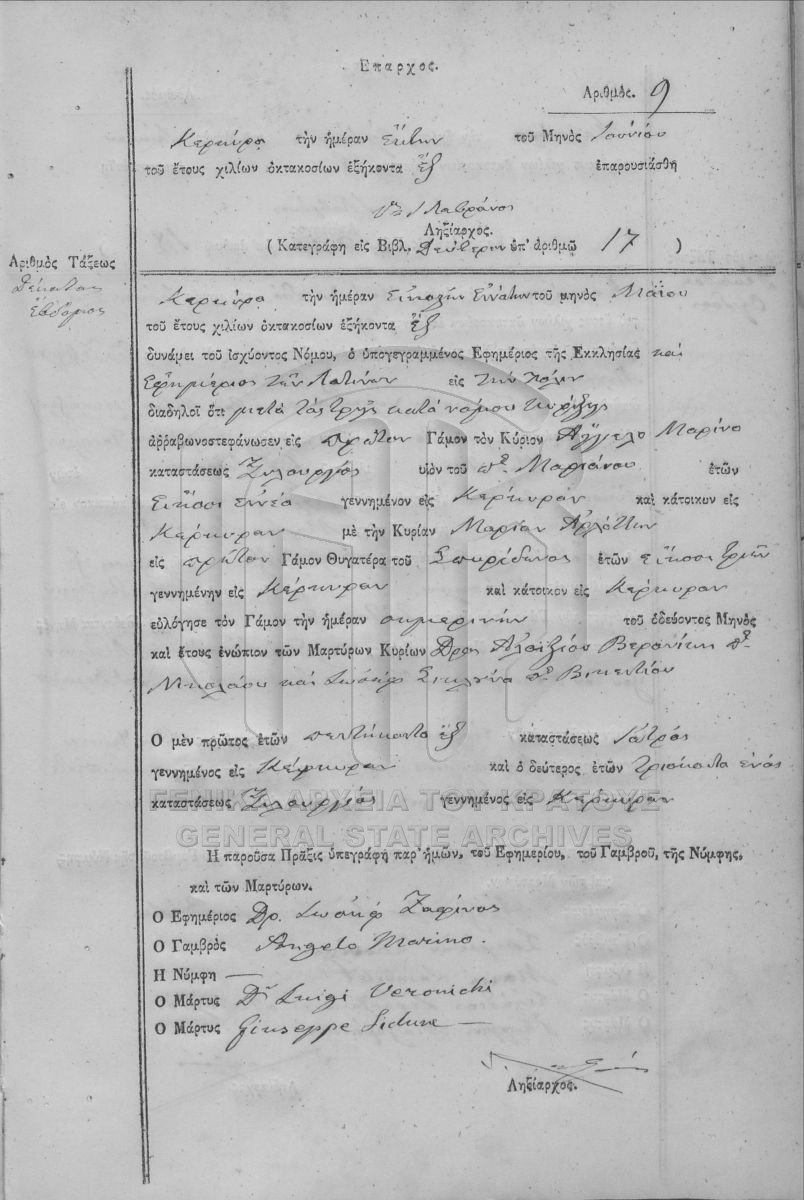 Επαρχος.
Αριθμὸς. 9
Κερκύρα τὴν ἡμέραν ἕκτην τοῦ Μηνὸς Ἰουνίου
τοῦ ἔτους χιλίων ὀκτακοσίων ἑξήκοντα ἕξ ἐπαρουσιάσθη
Λαβράνος
Ληξίαρχος.
( Κατεγράφη εἰς Βιβλ. Δεύτερον ὑπ' ἀριθμῷ 17 )
Αριθμὸς Τάξεως
Δέκατος
Έβδομος
Κερκύρα τὴν ἡμέραν Εἰκοστὴν Ἐννάτην τοῦ μηνὸς Μαΐου
τοῦ ἔτους χιλίων ὀκτακοσίων ἑξήκοντα ἕξ
δυνάμει τοῦ ἰσχύοντος Νόμου, ὁ ὑπογεγραμμένος Εφημέριος τῆς Εκκλησίας καὶ
Ἐφημέριος τῶν Λατίνων εἰς τὴν πόλιν
διαδηλοῖ ὅτι μετὰ τὰς τρεῖς κατὰ νόμον κηρύξεις
ἀῤῥαβωνοστεφάνωσεν εἰς πρῶτον Γάμον τὸν Κύριον Ἄγγελο Μαρίνο
καταστάσεως Ξυλουργός υἱὸν τοῦ πο Μαριάνου ἐτῶν
Εἴκοσι ἐννέα γεννημένον εἰς Κέρκυραν καὶ κάτοικυν εἰς
Κέρκυραν μὲ τὴν Κυρίαν Μαρίαν
εἰς πρῶτον Γάμον Θυγατέρα τοῦ Σπυρίδωνος ἐτῶν εἴκοσι τριῶν
γεννημένην εἰς Κέρκυραν καὶ κάτοικον εἰς Κέρκυραν
εὐλόγησε τὸν Γάμον τὴν ἡμέραν σημερινήν τοῦ ὁδεύοντος Μηνὸς
καὶ ἔτους ἐνώπιον τῶν Μαρτύρων Κυρίων Δρος Ἀλοΐζιος Βερονίκη πο
Νικολάου καὶ Ἰωσὴφ πο Βικεντίου
Ο μὲν πρῶτος ἐτῶν πεντήκοντα ἕξ καταστάσεως Ἰατρός
γεννημένος εἰς Κέρκυραν καὶ ὁ δεύτερος ἐτῶν τριάκοντα ἑνός
καταστάσεως Ξυλουργός γεννημένος εἰς Κέρκυραν
ΓΕΝΙΚΑ ΑΡΧΕΙΑ ΤΟΥ ΚΡΑΤΟΥΣ
GENERAL STATE ARCHIVES
Η παροῦσα Πρᾶξις ὑπεγράφη παρ' ἡμῶν, τοῦ Εφημερίου, τοῦ Γαμβροῦ, τῆς Νύμφης,
καὶ τῶν Μαρτύρων.
Ο Εφημέριος Δρ. Ἰωσὴφ Ζαφίνος
Ο Γαμβρὸς Angelo Marino.
Η Νύμφη —
Ο Μάρτυς Dr Luigi Veronichi
Ο Μάρτυς Giuseppe
Ληξίαρχος.